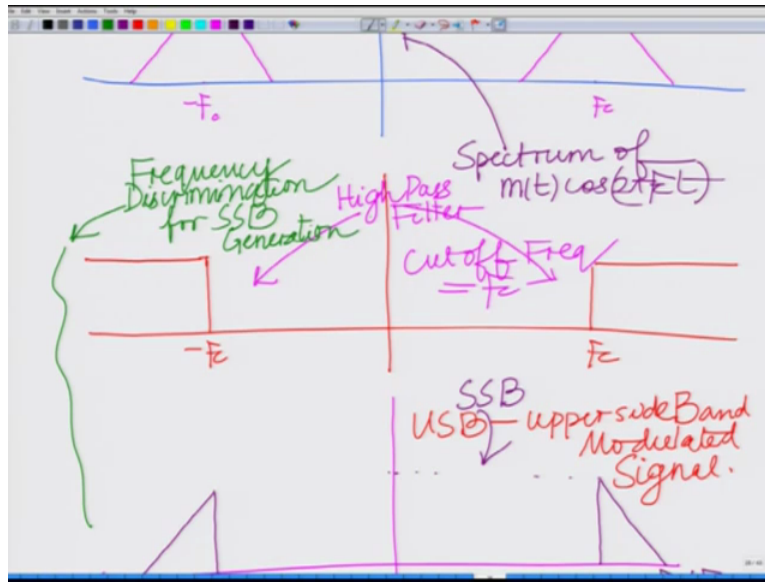 -F₀
Fc
Spectrum of
m(t) cos(2πFct)
Frequency
Discrimination
for SSB
Generation
High Pass
Filter
Cutoff Freq
= fc
-Fc
Fc
SSB
USB — upper side Band
Modulated
Signal.